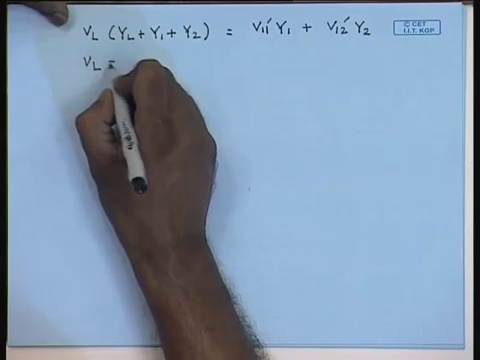 V_L (Y_L + Y_1 + Y_2) = V_11' Y_1 + V_12' Y_2
© CET
I.I.T. KGP
V_L =